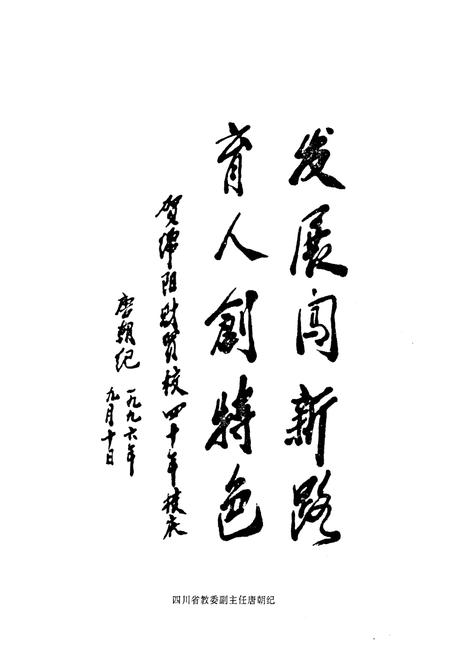 发展闯新路
育人創特色
贺绵阳财贸校四十年校庆
唐朝纪 一九九六年
九月十日
四川省教委副主任唐朝纪